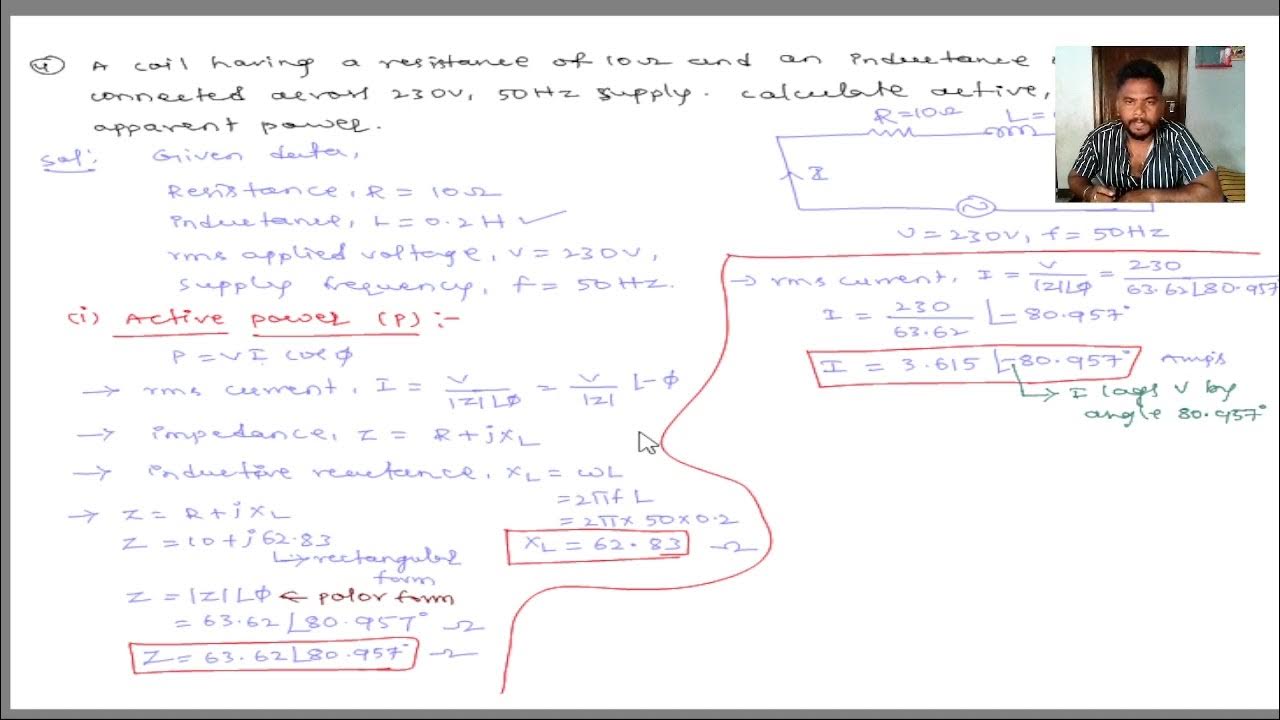 4) A coil having a resistance of 10Ω and an inductance
connected across 230V, 50Hz supply. calculate active,
apparent power.
R=10Ω L=
Sol: Given data,
Resistance, R = 10Ω
inductance, L = 0.2H ✓
I
rms applied voltage, V = 230V,
supply frequency, f = 50Hz.
V = 230V, f = 50Hz
(i) Active power (P) :-
P = VI cos φ
→ rms current, I = V/|Z|∠φ = V/|Z| ∠-φ
→ impedance, Z = R+jXL
→ inductive reactance, XL = ωL
= 2πf L
= 2π × 50 × 0.2
XL = 62.83 Ω
→ Z = R+jXL
Z = 10+j62.83
↳ rectangular
form
Z = |Z|∠φ ← polar form
= 63.62∠80.957° Ω
Z = 63.62∠80.957° Ω
→ rms current, I = V/|Z|∠φ = 230/63.62∠80.957
I = 230/63.62 ∠-80.957°
I = 3.615 ∠-80.957° Amps
↳ I lags V by
angle 80.957°